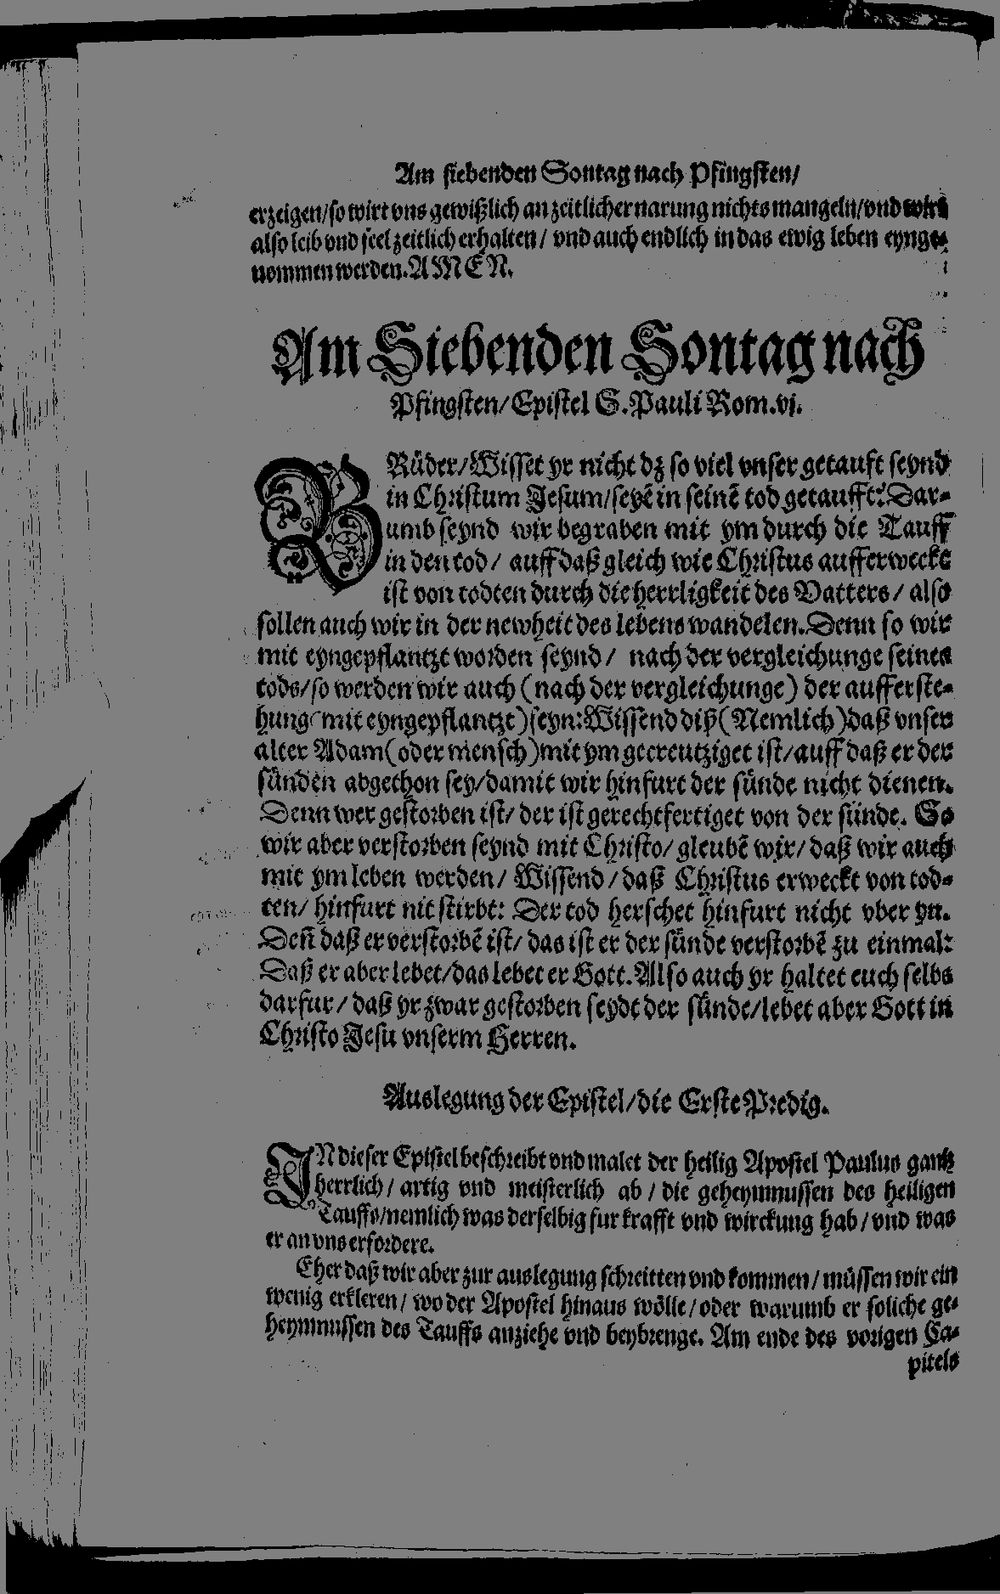 Am siebenden Sontag nach Pfingsten/
erzeigen/so wirt vns gewißlich an zeitlicher narung nichts mangeln/vnd
also leib vnd seel zeitlich erhalten/ vnd auch endlich in das ewig leben eynge-
nommen werden. AMEN.
Am Siebenden Sontag nach
Pfingsten/ Epistel S. Pauli Rom. vj.
BRüder/Wisset yr nicht dz so viel vnser getauft seynd
in Christum Jesum/seyē in seinē tod getaufft? Dar-
umb seynd wir begraben mit ym durch die Tauff
in den tod/ auff daß gleich wie Christus aufferweckt
ist von todten durch die herrligkeit des Vatters/ also
sollen auch wir in der newheit des lebens wandelen. Denn so wir
mit eyngepflantzt worden seynd/ nach der vergleichunge seines
tods/so werden wir auch (nach der vergleichunge) der aufferste-
hung (mit eyngepflantzt) seyn: Wissend diß (Nemlich) daß vnser
alter Adam (oder mensch) mit ym gecreutziget ist/ auff daß er der
sünden abgethon sey/damit wir hinfurt der sünde nicht dienen.
Denn wer gestorben ist/ der ist gerechtfertiget von der sünde. So
wir aber verstorben seynd mit Christo/ gleubē wir/ daß wir auch
mit ym leben werden/ Wissend/ daß Christus erweckt von tod-
ten/ hinfurt nit stirbt: Der tod herschet hinfurt nicht vber yn.
Deñ daß er verstorbē ist/ das ist er der sünde verstorbē zu einmal:
Daß er aber lebet/das lebet er Gott. Also auch yr haltet euch selbs
darfur/ daß yr zwar gestorben seydt der sünde/lebet aber Gott in
Christo Jesu vnserm Herren.
Auslegung der Epistel/die Erste Predig.
IN dieser Epistel beschreibt vnd malet der heilig Apostel Paulus gantz
herrlich/ artig vnd meisterlich ab/ die geheymnussen des heiligen
Tauffs/nemlich was derselbig fur krafft vnd wirckung hab/ vnd was
er an vns erfordere.
Eher daß wir aber zur auslegung schreitten vnd kommen/ müssen wir ein
wenig erkleren/ wo der Apostel hinaus wölle/ oder warumb er soliche ge-
heymnussen des Tauffs anziehe vnd beybrenge. Am ende des vorigen Ca-
pitels